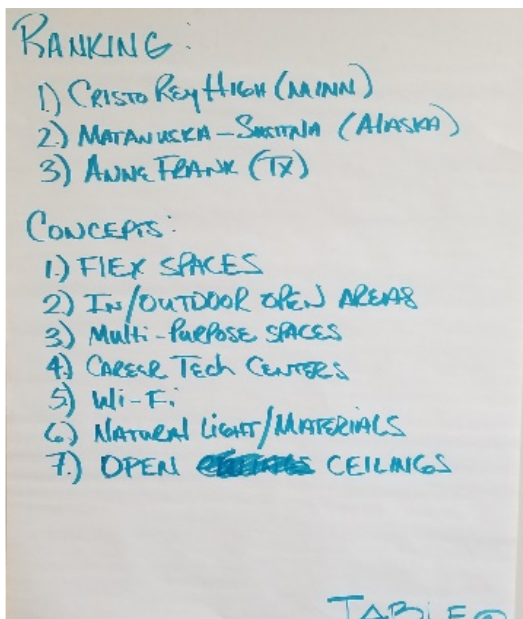 RANKING:
1) CRISTO REY HIGH (MINN)
2) MATANUSKA-SUSITNA (ALASKA)
3) ANNE FRANK (TX)
CONCEPTS:
1.) FLEX SPACES
2) IN/OUTDOOR OPEN AREAS
3) MULTI-PURPOSE SPACES
4) CAREER TECH CENTERS
5) Wi-Fi
6) NATURAL LIGHT/MATERIALS
7.) OPEN CEILINGS
TABLE